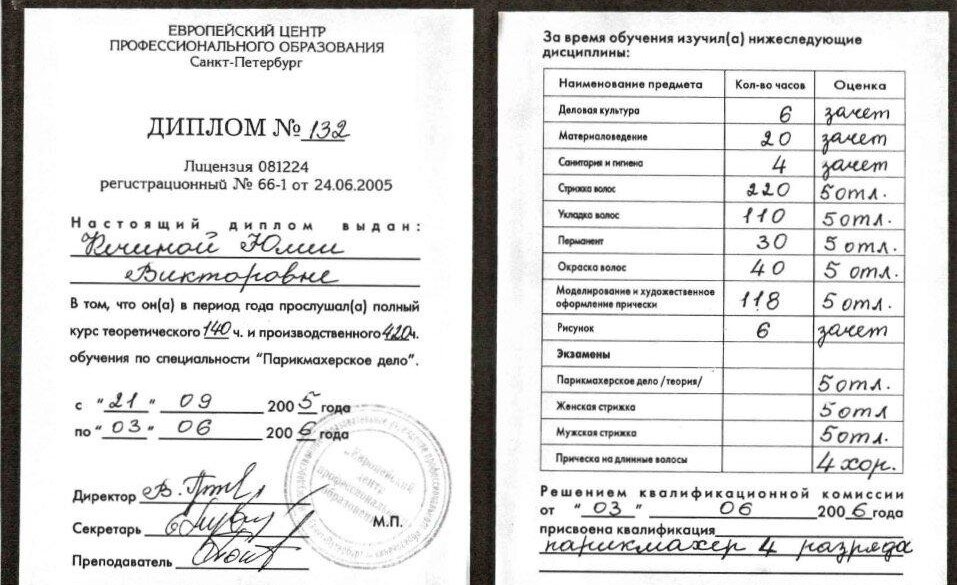 ЕВРОПЕЙСКИЙ ЦЕНТР
ПРОФЕССИОНАЛЬНОГО ОБРАЗОВАНИЯ
Санкт-Петербург
ДИПЛОМ № 132
Лицензия 081224
регистрационный № 66-1 от 24.06.2005
Настоящий диплом выдан:
Кечиной Юлии
Викторовне
В том, что он(а) в период года прослушал(а) полный
курс теоретического 140 ч. и производственного 420 ч.
обучения по специальности "Парикмахерское дело".
с "21" 09 2005 года
по "03" 06 2006 года
Директор
Секретарь
М.П.
Преподаватель
За время обучения изучил(а) нижеследующие
дисциплины:
Наименование предмета Кол-во часов Оценка
Деловая культура 6 зачет
Материаловедение 20 зачет
Санитария и гигиена 4 зачет
Стрижка волос 220 5 отл.
Укладка волос 110 5 отл.
Перманент 30 5 отл.
Окраска волос 40 5 отл.
Моделирование и художественное
оформление прически 118 5 отл.
Рисунок 6 зачет
Экзамены
Парикмахерское дело /теория/ 5 отл.
Женская стрижка 5 отл
Мужская стрижка 5 отл.
Прическа на длинные волосы 4 хор.
Решением квалификационной комиссии
от "03" 06 2006 года
присвоена квалификация
парикмахер 4 разряда